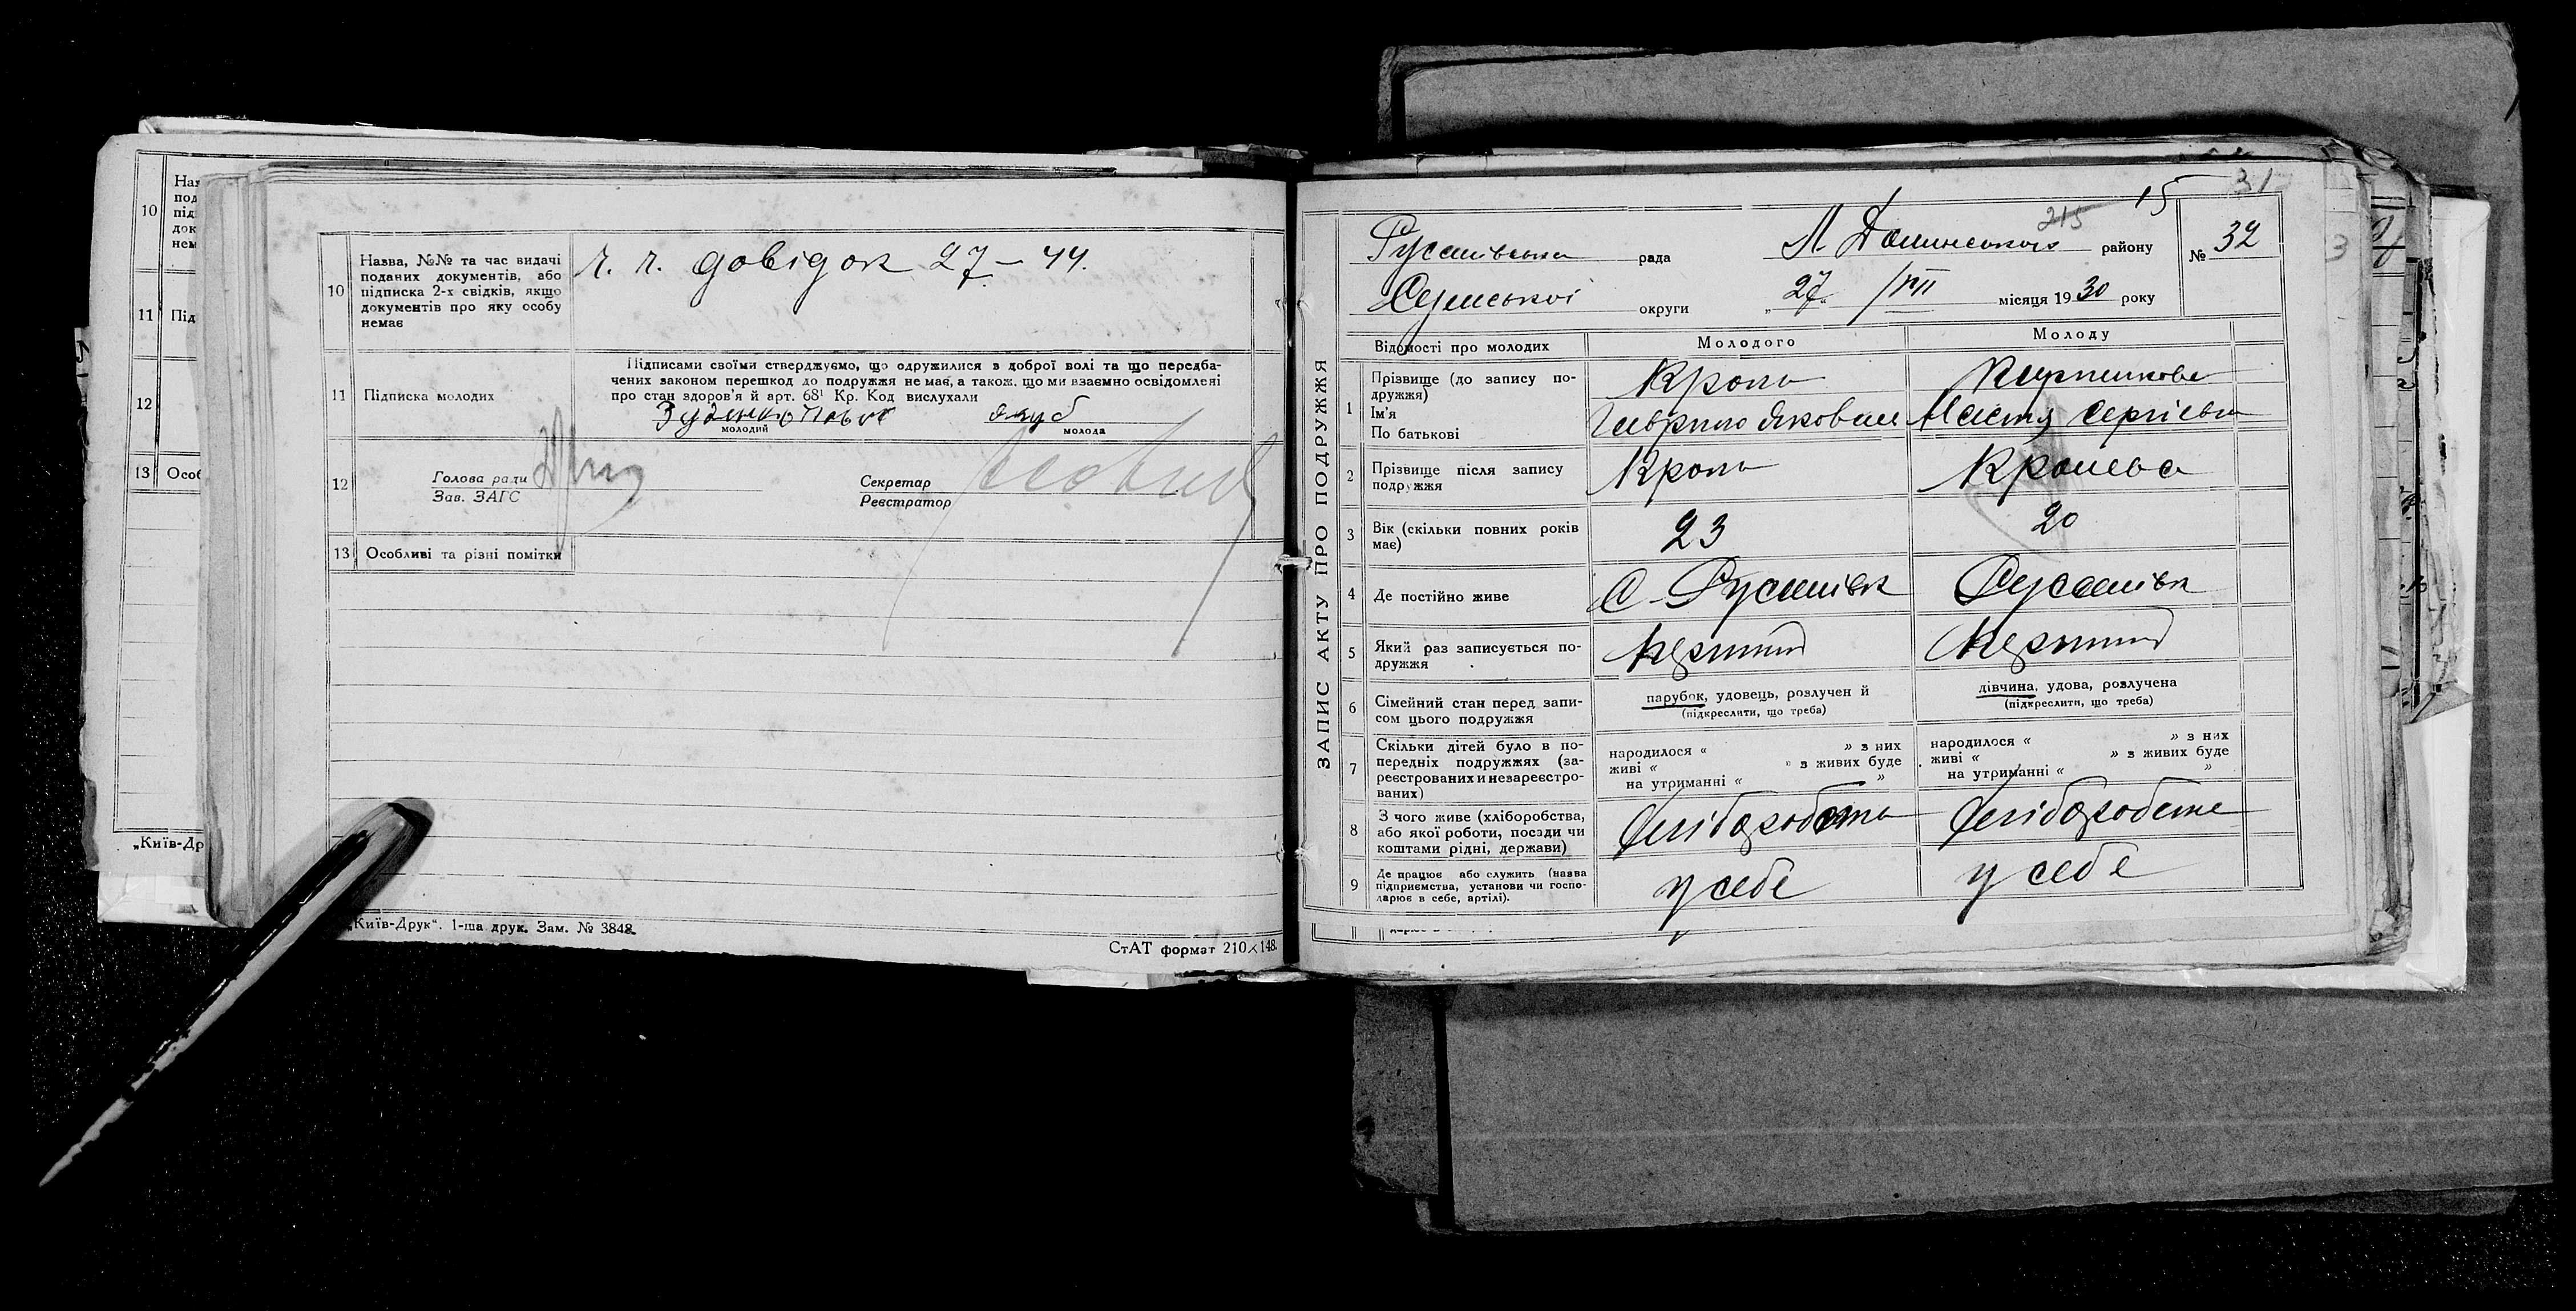 10
На
под
під
док
нем
11 Під
12
13 Особ
„Київ-Др
10 Назва, №№ та час видачі
поданих документів, або
підписка 2-х свідків, якщо
документів про яку особу
немає
ч. ч. довідок 27 – 44.
11 Підписка молодих
Підписами своїми стверджуємо, що одружилися в доброї волі та що передба-
чених законом перешкод до подружжя не має, а також, що ми взаємно освідомлені
про стан здоров'я й арт. 68¹ Кр. Код вислухали
молодий
молода
12
Голова ради
Зав. ЗАГС
Секретар
Реєстратор
13 Особливі та різні помітки
„Київ-Друк“. 1-ша друк. Зам. № 3848.
СтАТ формат 210×148.
ЗАПИС АКТУ ПРО ПОДРУЖЖЯ
31
215 15
Русанівська рада района району
№ 32
Сумської округи „27 /VII місяця 1930 року
Відомості про молодих
Молодого
Молоду
1 Прізвище (до запису по-
дружжя)
Ім'я
По батькові
Кроль
Гаврило Якович
Настя Сергіевна
2 Прізвище після запису
подружжя
Кроль
Кролева
3 Вік (скільки повних років
має)
23
20
4 Де постійно живе
С. Русанівк
Русанівк
5 Який раз записується по-
дружжя
Перший
Перший
6 Сімейний стан перед запи-
сом цього подружжя
парубок, удовець, розлучен й
(підкреслити, що треба)
дівчина, удова, розлучена
(підкреслити, що треба)
7 Скільки дітей було в по-
передніх подружжях (за-
реєстрованих и незареєстро-
ваних)
народилося “ ” з них
живі “ ” з живих буде
на утриманні “ ”
народилося “ ” з них
живі “ ” з живих буде
на утриманні “ ”
8 З чого живе (хліборобства,
або якої роботи, посади чи
коштами рідні, держави)
хліборобства
хліборобства
9 Де працює або служить (назва
підприємства, установи чи госпо-
дарює в себе, артілі).
у себе
у себе